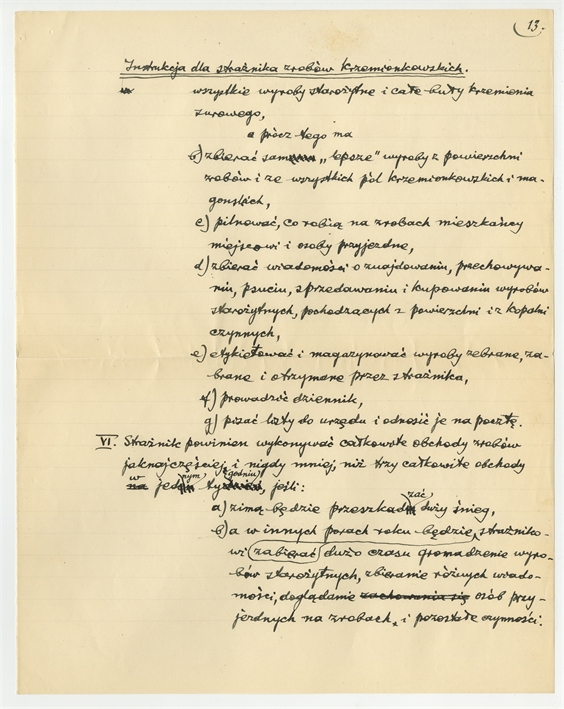 13.
Instrukcja dla strażnika zrobów krzemionkowskich.
wszystkie wyroby starożytne i całe buły krzemienia
surowego,
a prócz tego ma
b) zbierać sam „lepsze" wyroby z powierzchni
zrobów i ze wszystkich pól krzemionkowskich i ma-
gońskich,
c) pilnować, co robią na zrobach mieszkańcy
miejscowi i osoby przyjezdne,
d) zbierać wiadomości o znajdowaniu, przechowywa-
niu, psuciu, sprzedawaniu i kupowaniu wyrobów
starożytnych, pochodzących z powierzchni i z kopalni
czynnych,
e) etykietować i magazynować wyroby zebrane, za-
brane i otrzymane przez strażnika,
f) prowadzić dziennik,
g) pisać listy do urzędu i odnosić je na pocztę.
VI. Strażnik powinien wykonywać całkowite obchody zrobów
jaknajczęściej, i nigdy mniej, niż trzy całkowite obchody
w jednym tygodniu, jeśli:
a) zimą będzie przeszkadzać duży śnieg,
b) a w innych porach roku będzie strażniko-
wi zabierać dużo czasu gromadzenie wyro-
bów starożytnych, zbieranie różnych wiado-
mości, doglądanie zachowania się osób przy-
jezdnych na zrobach, i pozostałe czynności.